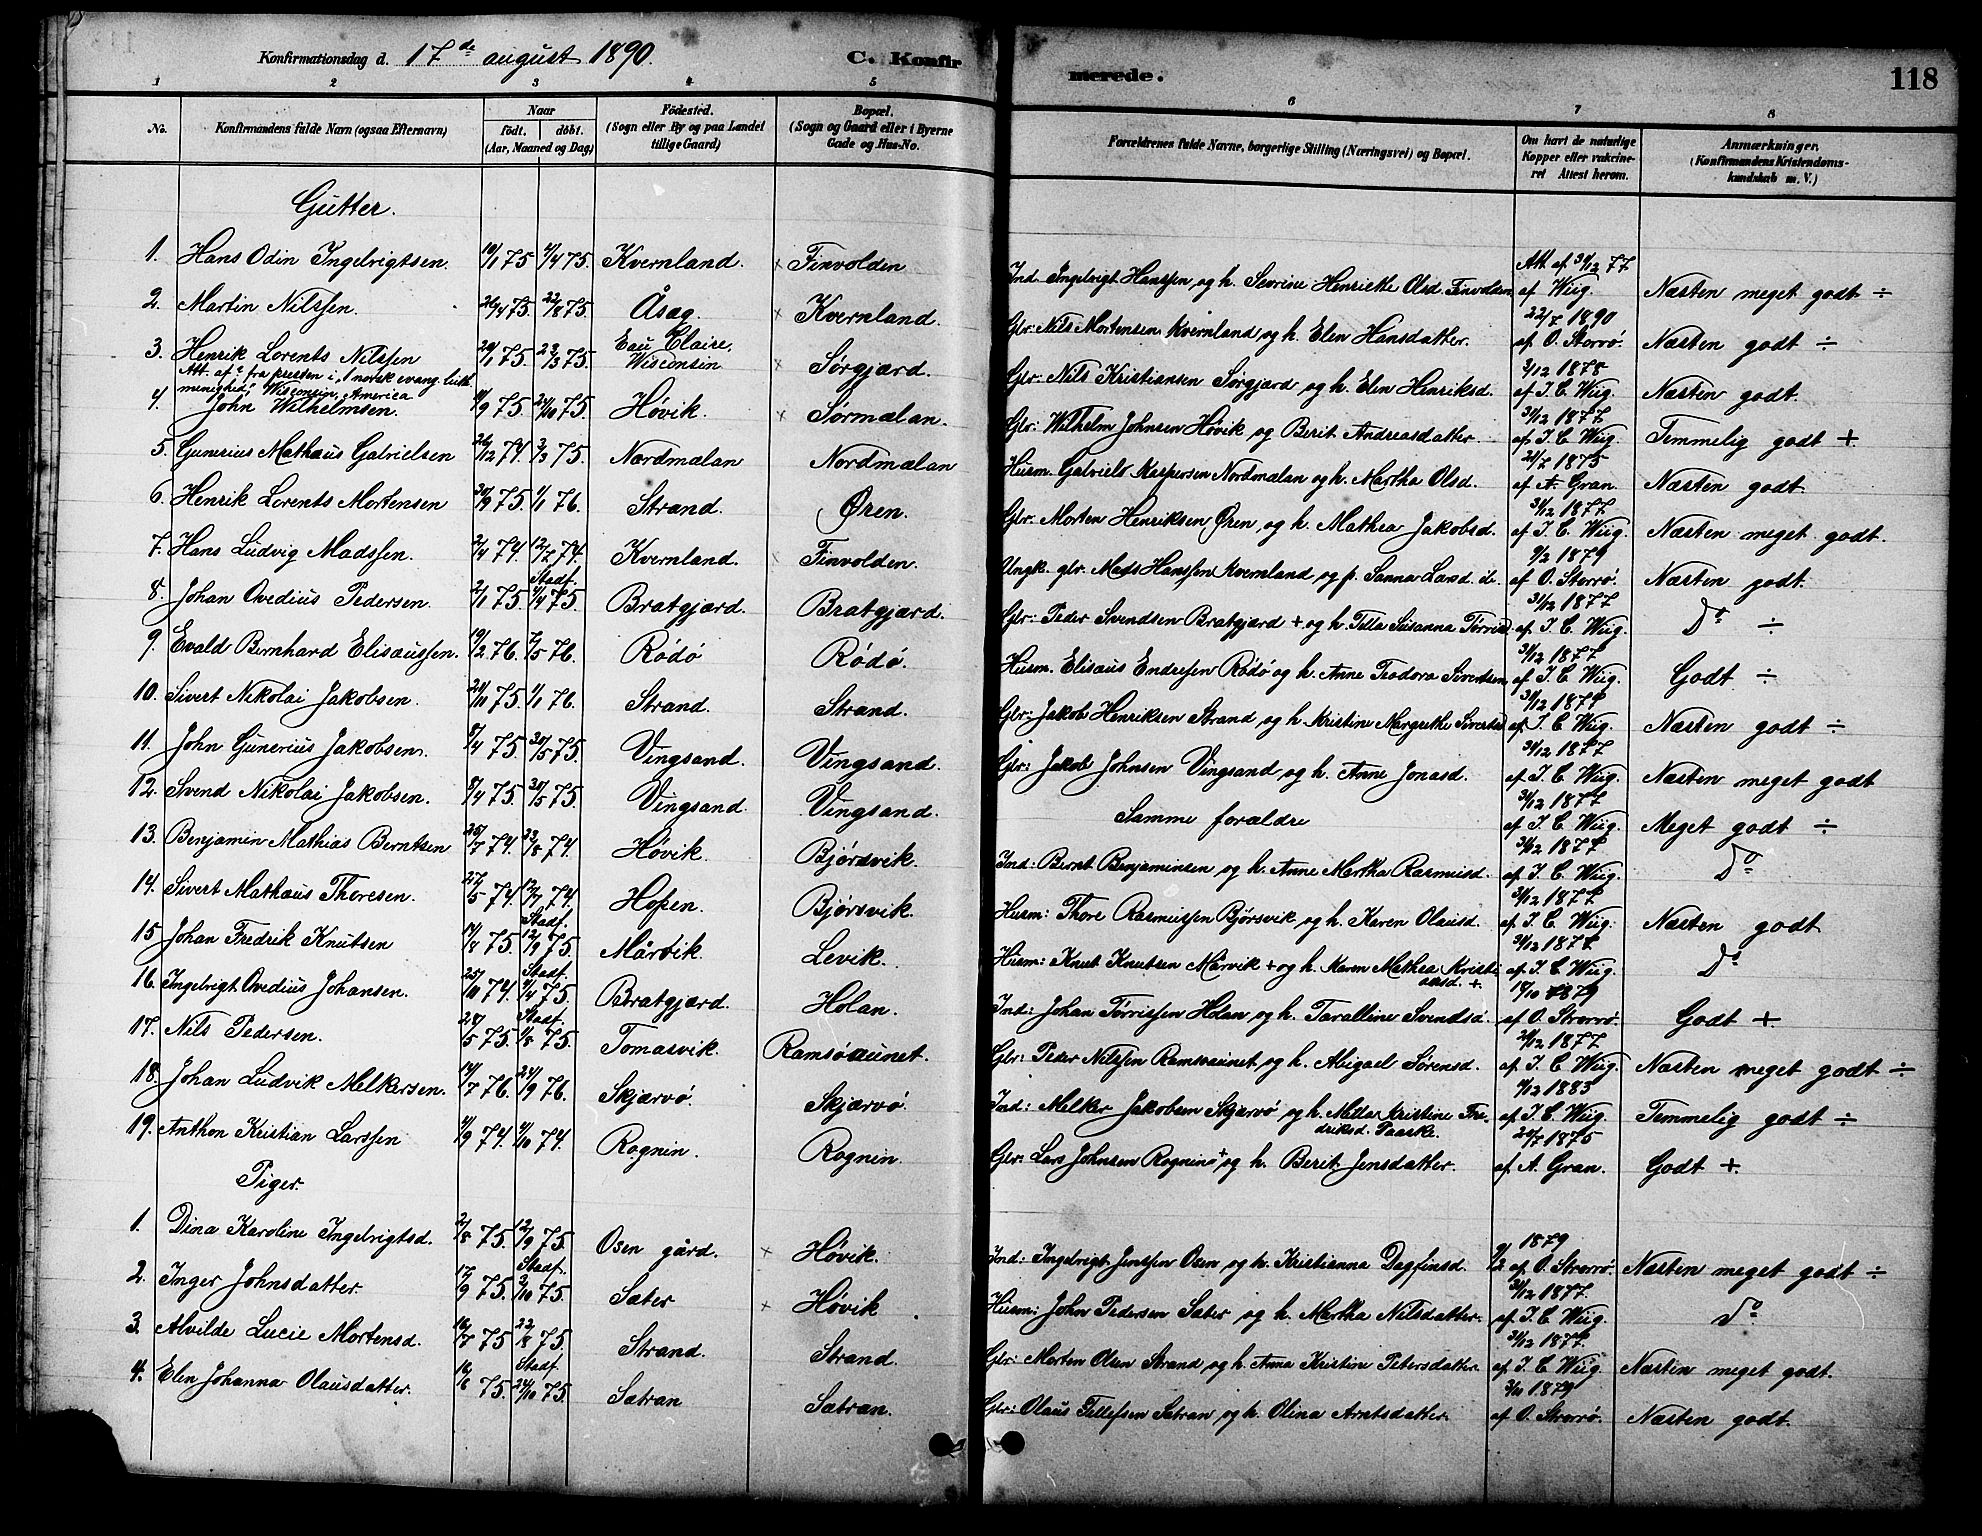 Konfirmationsdag d. 17de august 1890. C. Konfirmerede. 118
1 2 3 4 5 6 7 8
No. Konfirmandens fulde Navn (ogsaa Efternavn) Naar födt. döbt. (Aar, Maaned og Dag) Födested. (Sogn eller By og paa Landet tillige Gaard) Bopæl. (Sogn og Gaard eller i Byerne Gade og Hus-No. Forældrenes fulde Navne, borgerlige Stilling (Næringsvei) og Bopæl. Om havt de naturlige Kopper eller vakcineret Attest herom. Anmærkninger. (Konfirmandens Kristendomskundskab m. V.)
Gutter.
1. Hans Odin Ingelrigtsen 19/1 75 4/4 75 Kvernland. Finvolden Ind: Ingelrigt Hanssen og h. Sevrine Henriette Olsd. Finvolden Att. af 31/12 77 af Wiig. Næsten meget godt ÷
2. Martin Nilssen. 26/4 75 22/8 75. Åsag. Kvernland. Gbr. Nils Mortensen Kvernland og h. Elen Hansdatter. 22/7 1890 af O. Storrö. Næsten godt ÷
3. Henrik Lorents Nilssen 20/1 75. 23/3 75. Eau Claire, Wisconsin Sørgjærd. Gbr. Nils Kristiansen Sørgjærd og h. Elen Henriksd. 3/12 1878 af I. C. Wiig. Næsten godt.
Att. af fra presten i "1 norsk evang. luth. menighed", Wisconsin, America
4. John Wilhelmsen. 11/9 75. 24/10 75. Høvik. Sørmælan. Gbr: Wilhelm Johnsen Høvik og Berit Andreasdatter 31/12 1877 af I. C. Wiig. Temmelig godt +
5. Gunerius Mathæus Gabrielsen 26/12 74. 3/3 75. Nordmælan Nordmælan Husm. Gabriel Kaspersen Nordmælan og h. Martha Olsd. 21/7 1875 af A. Gran. Næsten godt.
6. Henrik Lorents Mortensen 30/9 75. 1/1 76. Strand. Øren. Gbr. Morten Henriksen Øren, og h. Mathea Jakobsd. 31/12 1877 af I. C. Wiig. Næsten meget godt.
7. Hans Ludvig Madssen. 2/4 74. 12/7 74. Kvernland. Finvolden. Ungk. gbr. Mads Hanssen Kvernland og p. Sanna Larsd. 9/2 1879 af O. Storrö. Næsten godt.
8. Johan Ovedius Pedersen. 2/1 75. Stadf. 4/4 75. Bratgjærd. Bratgjærd. Gbr: Peder Svendsen Bratgjærd + og h. Susanna 31/12 1877 af I. C. Wiig. Do ÷
9. Evald Bernhard Elisæussen. 19/2 76. 7/5 76. Rödö Rödö. Husm. Elisæus Endresen Rödö og h. Anne Teodora Sivertsen 31/12 1877 af I. C. Wiig. Godt ÷
10. Sivert Nikolai Jakobsen. 21/11 75. 1/1 76. Strand. Strand. Gbr: Jakob Henriksen Strand og h. Kristine Margrethe Sivertsd. 31/12 1877 af I. C. Wiig. Næsten godt ÷
11. John Gunerius Jakobsen. 8/4 75. 30/5 75. Vingsand. Vingsand. Gbr: Jakob Johnsen Vingsand og h. Anne Jonasd. 31/12 1877 af I. C. Wiig. Næsten meget godt
12. Svend Nikolai Jakobsen. 8/4 75. 30/5 75. Vingsand. Vingsand. Samme forældre 31/12 1877 af I. C. Wiig. Meget godt ÷
13. Benjamin Mathias Berntsen 25/7 74. 23/8 74. Høvik. Bjørsvik. Ind: Bernt Benjaminsen og h. Anne Martha Rasmusd. 31/12 1877 af I. C. Wiig. Do
14. Sivert Mathæus Thoresen. 27/5 74. 12/7 74. Hopen. Bjørsvik. Husm: Thore Rasmussen Bjørsvik og h. Karen Olausd. 31/12 1877 af I. C. Wiig. Næsten godt
15 Johan Fredrik Knutsen 14/8 75. Stadf. 12/9 75. Mårvik. Levik. Husm: Knut Knutsen Mårvik + og h. Karen Mathea +. 31/12 1877 af I. C. Wiig. Do
16. Ingelrigt Ovedius Johansen. 25/10 74. Stadf. 4/4 75. Bratgjærd. Holan. Ind: Johan Tørrissen Holan og h. Taralline Svendsd. 19/10 1879 af O. Storrö. Godt +
17. Nils Pedersen. 28/5 75. Stadf. 1/8 75. Tomasvik. Ramsöaunet. Gbr: Peder Nilssen Ramsöaunet og h. Abigael Sørensd. 31/12 1877 af I. C. Wiig. Næsten meget godt ÷
18. Johan Ludvik Melkersen. 14/7 76. 24/9 76. Skjærvö. Skjærvö. Ind: Melker Jakobsen Skjærvö og h. Metta Kristine Fredriksd. Paaske. 9/12 1883 af I. C. Wiig. Temmelig godt ÷
19. Anthon Kristian Larssen 4/9 74. 4/10 74. Rognin. Rognin. Gbr: Lars Johnsen Rognin + og h. Berit Jensdatter. 20/7 1875 af A. Gran. Godt +.
Piger.
1. Dina Karoline Ingelrigtsd. 2/8 75. 12/9 75. Osen gård. Høvik. Ind: Ingelrigt Jenssen Osen og h. Kristianna Dagfinsd. 9/2 1879 af O. Storrö. Næsten meget godt ÷
2. Inger Johnsdatter. 17/9 75. Stadf. 3/10 75. Sæter Høvik Husm: John Pedersen Sæter og h. Martha Nilsdatter. 31/12 1877. af I. C. Wiig. Do
3. Alvilde Lucie Mortensd. 16/7 75 22/8 75. Strand. Strand. Gbr: Morten Olsen Strand og h. Anna Kristin Petersdatter. 31/12 1877. af I. C. Wiig. Næsten meget godt.
4. Elen Johanna Olausdatter. 16/8 75. Stadf. 24/10 75. Sætran Sætran. Gbr: Olaus Tellefsen Sætran og h. Olina Arntsdatter. 3/11 1879 af O. Storrö. Næsten godt.